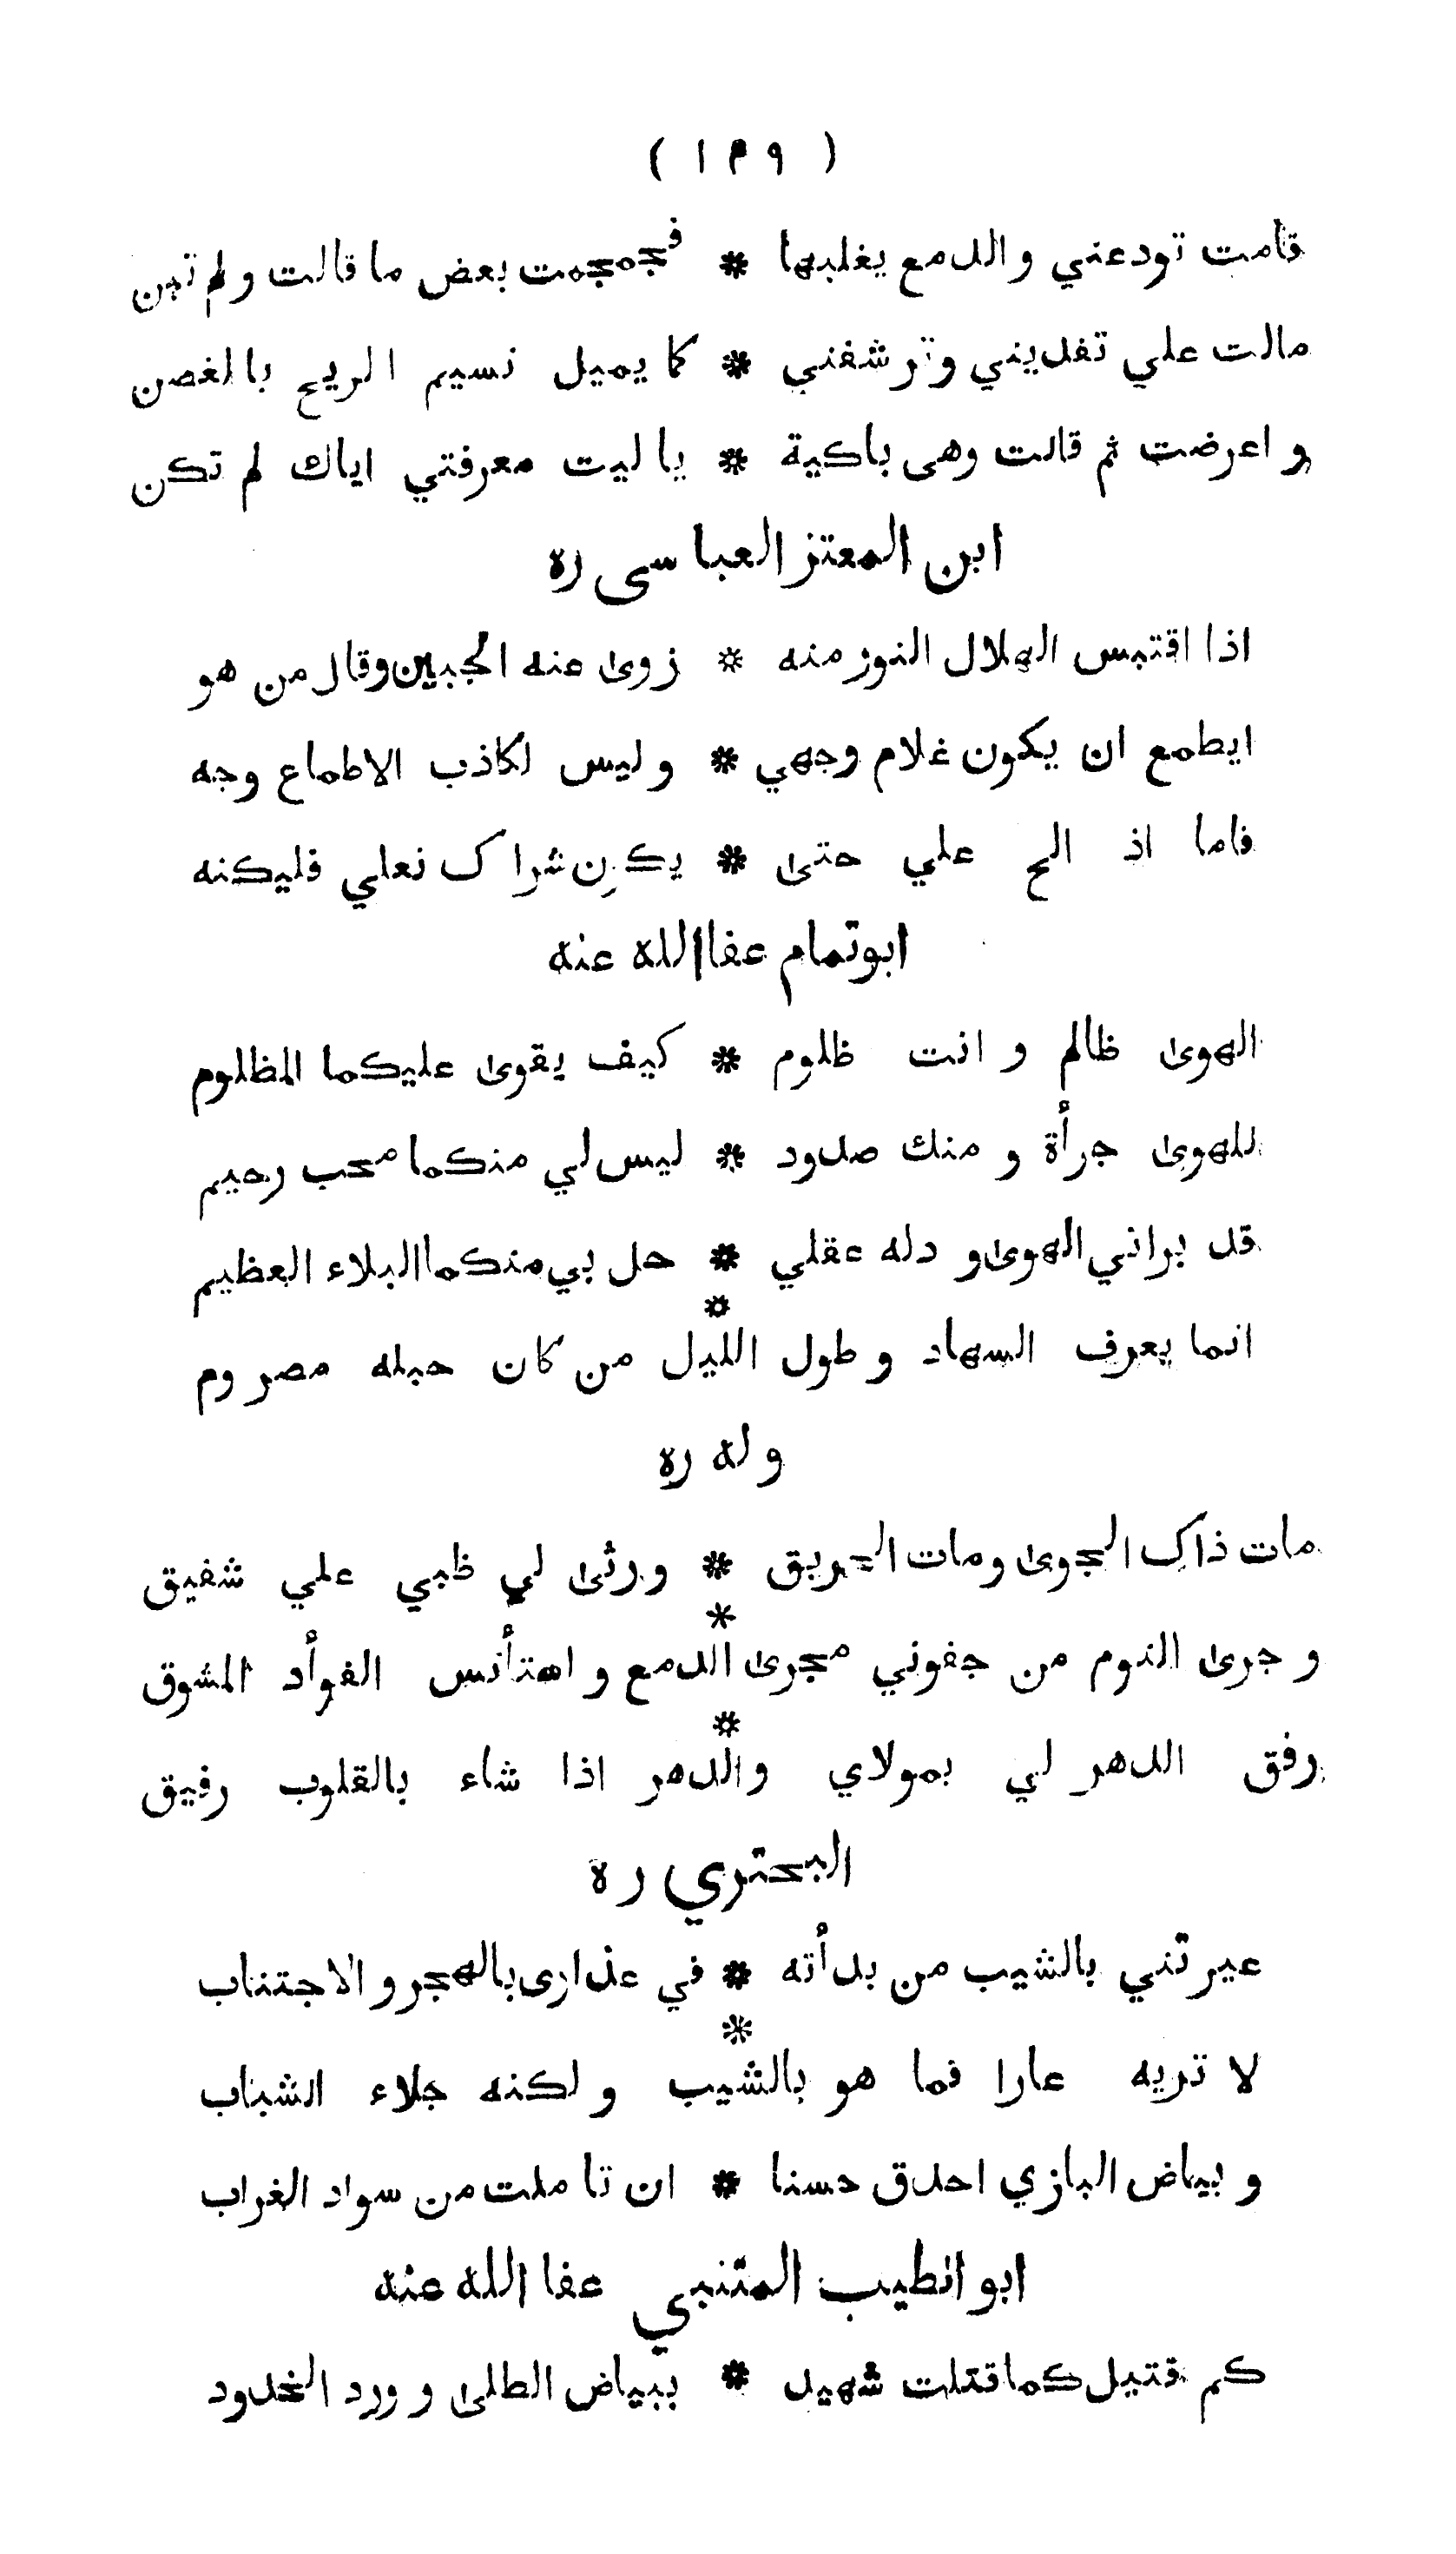 ( ١٣٩ )
قامت تودعني والدمع يغلبها * فجمجمت بعض ما قالت ولم تبن
مالت علي تفديني وترشفني * كما يميل نسيم الريح بالغصن
واعرضت ثم قالت وهى باكية * يا ليت معرفتي اياك لم تكن
ابن المعتز العباسى ره
اذا اقتبس الهلال النور منه * زوى عنه الجبين وقال من هو
ايطمع ان يكون غلام وجهي * وليس لكاذب الاطماع وجه
فاما اذ الح علي حتى * يكن شراك نعلي فليكنه
ابوتمام عفا الله عنه
الهوى ظالم و انت ظلوم * كيف يقوى عليكما المظلوم
للهوى جرأة و منك صدود * ليس لي منكما محب رحيم
قد براني الهوى و دله عقلي * حل بي منكما البلاء العظيم
انما يعرف السهاد و طول الليل * من كان حبله مصروم
وله ره
مات ذاك الجوى ومات الحريق * ورثى لي ظبي علي شفيق
و جرى النوم من جفوني مجرى الدمع * و استأنس الفوأد المشوق
رفق الدهر لي بمولاي والدهر * اذا شاء بالقلوب رفيق
البحتري ره
عيرتني بالشيب من بدأته * في عذارى بالهجر و الاجتناب
لا تريه عارا فما هو بالشيب * و لكنه جلاء الشباب
و بياض البازي احدق حسنا * ان تاملت من سواد الغراب
ابو الطيب المتنبي عفا الله عنه
كم قتيل كما قتلت شهيد * ببياض الطلى و ورد الخدود